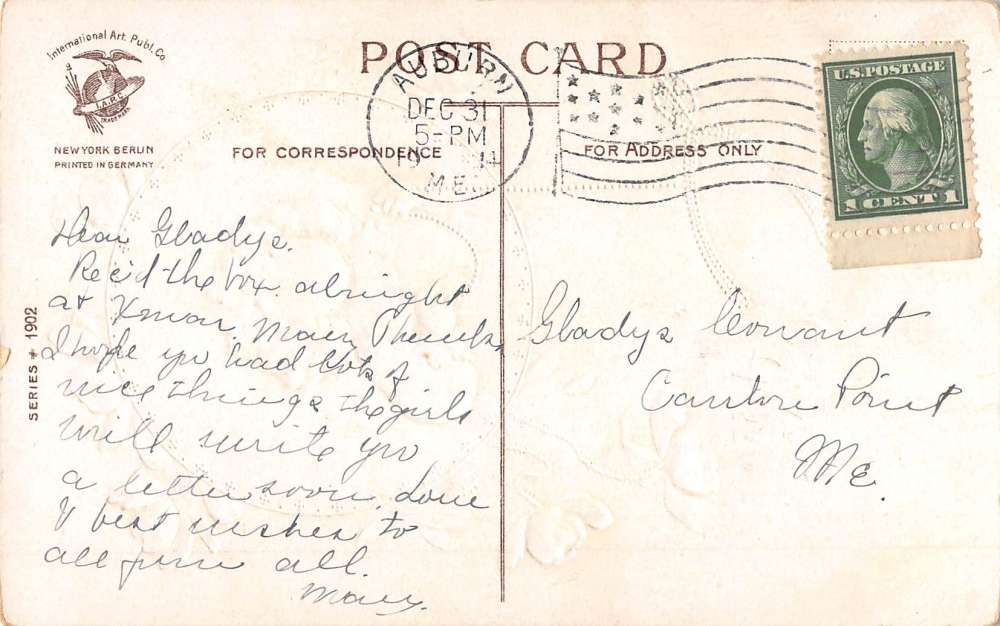 International Art Publ. Co
I.A.P.C.
TRADE MARK
NEW YORK BERLIN
PRINTED IN GERMANY
POST CARD
AUBURN
DEC 31
5-PM
14
ME.
FOR CORRESPONDENCE
FOR ADDRESS ONLY
U.S. POSTAGE
1 CENT 1
SERIES # 1902
Dear Gladys.
Rec'd the box alright
at Xmas. Many Thanks,
I hope you had lots of
nice things the girls
will write you
a letter soon. Love
& best wishes to
all from all.
Mary.
Gladys Conant
Canton Point
Me.